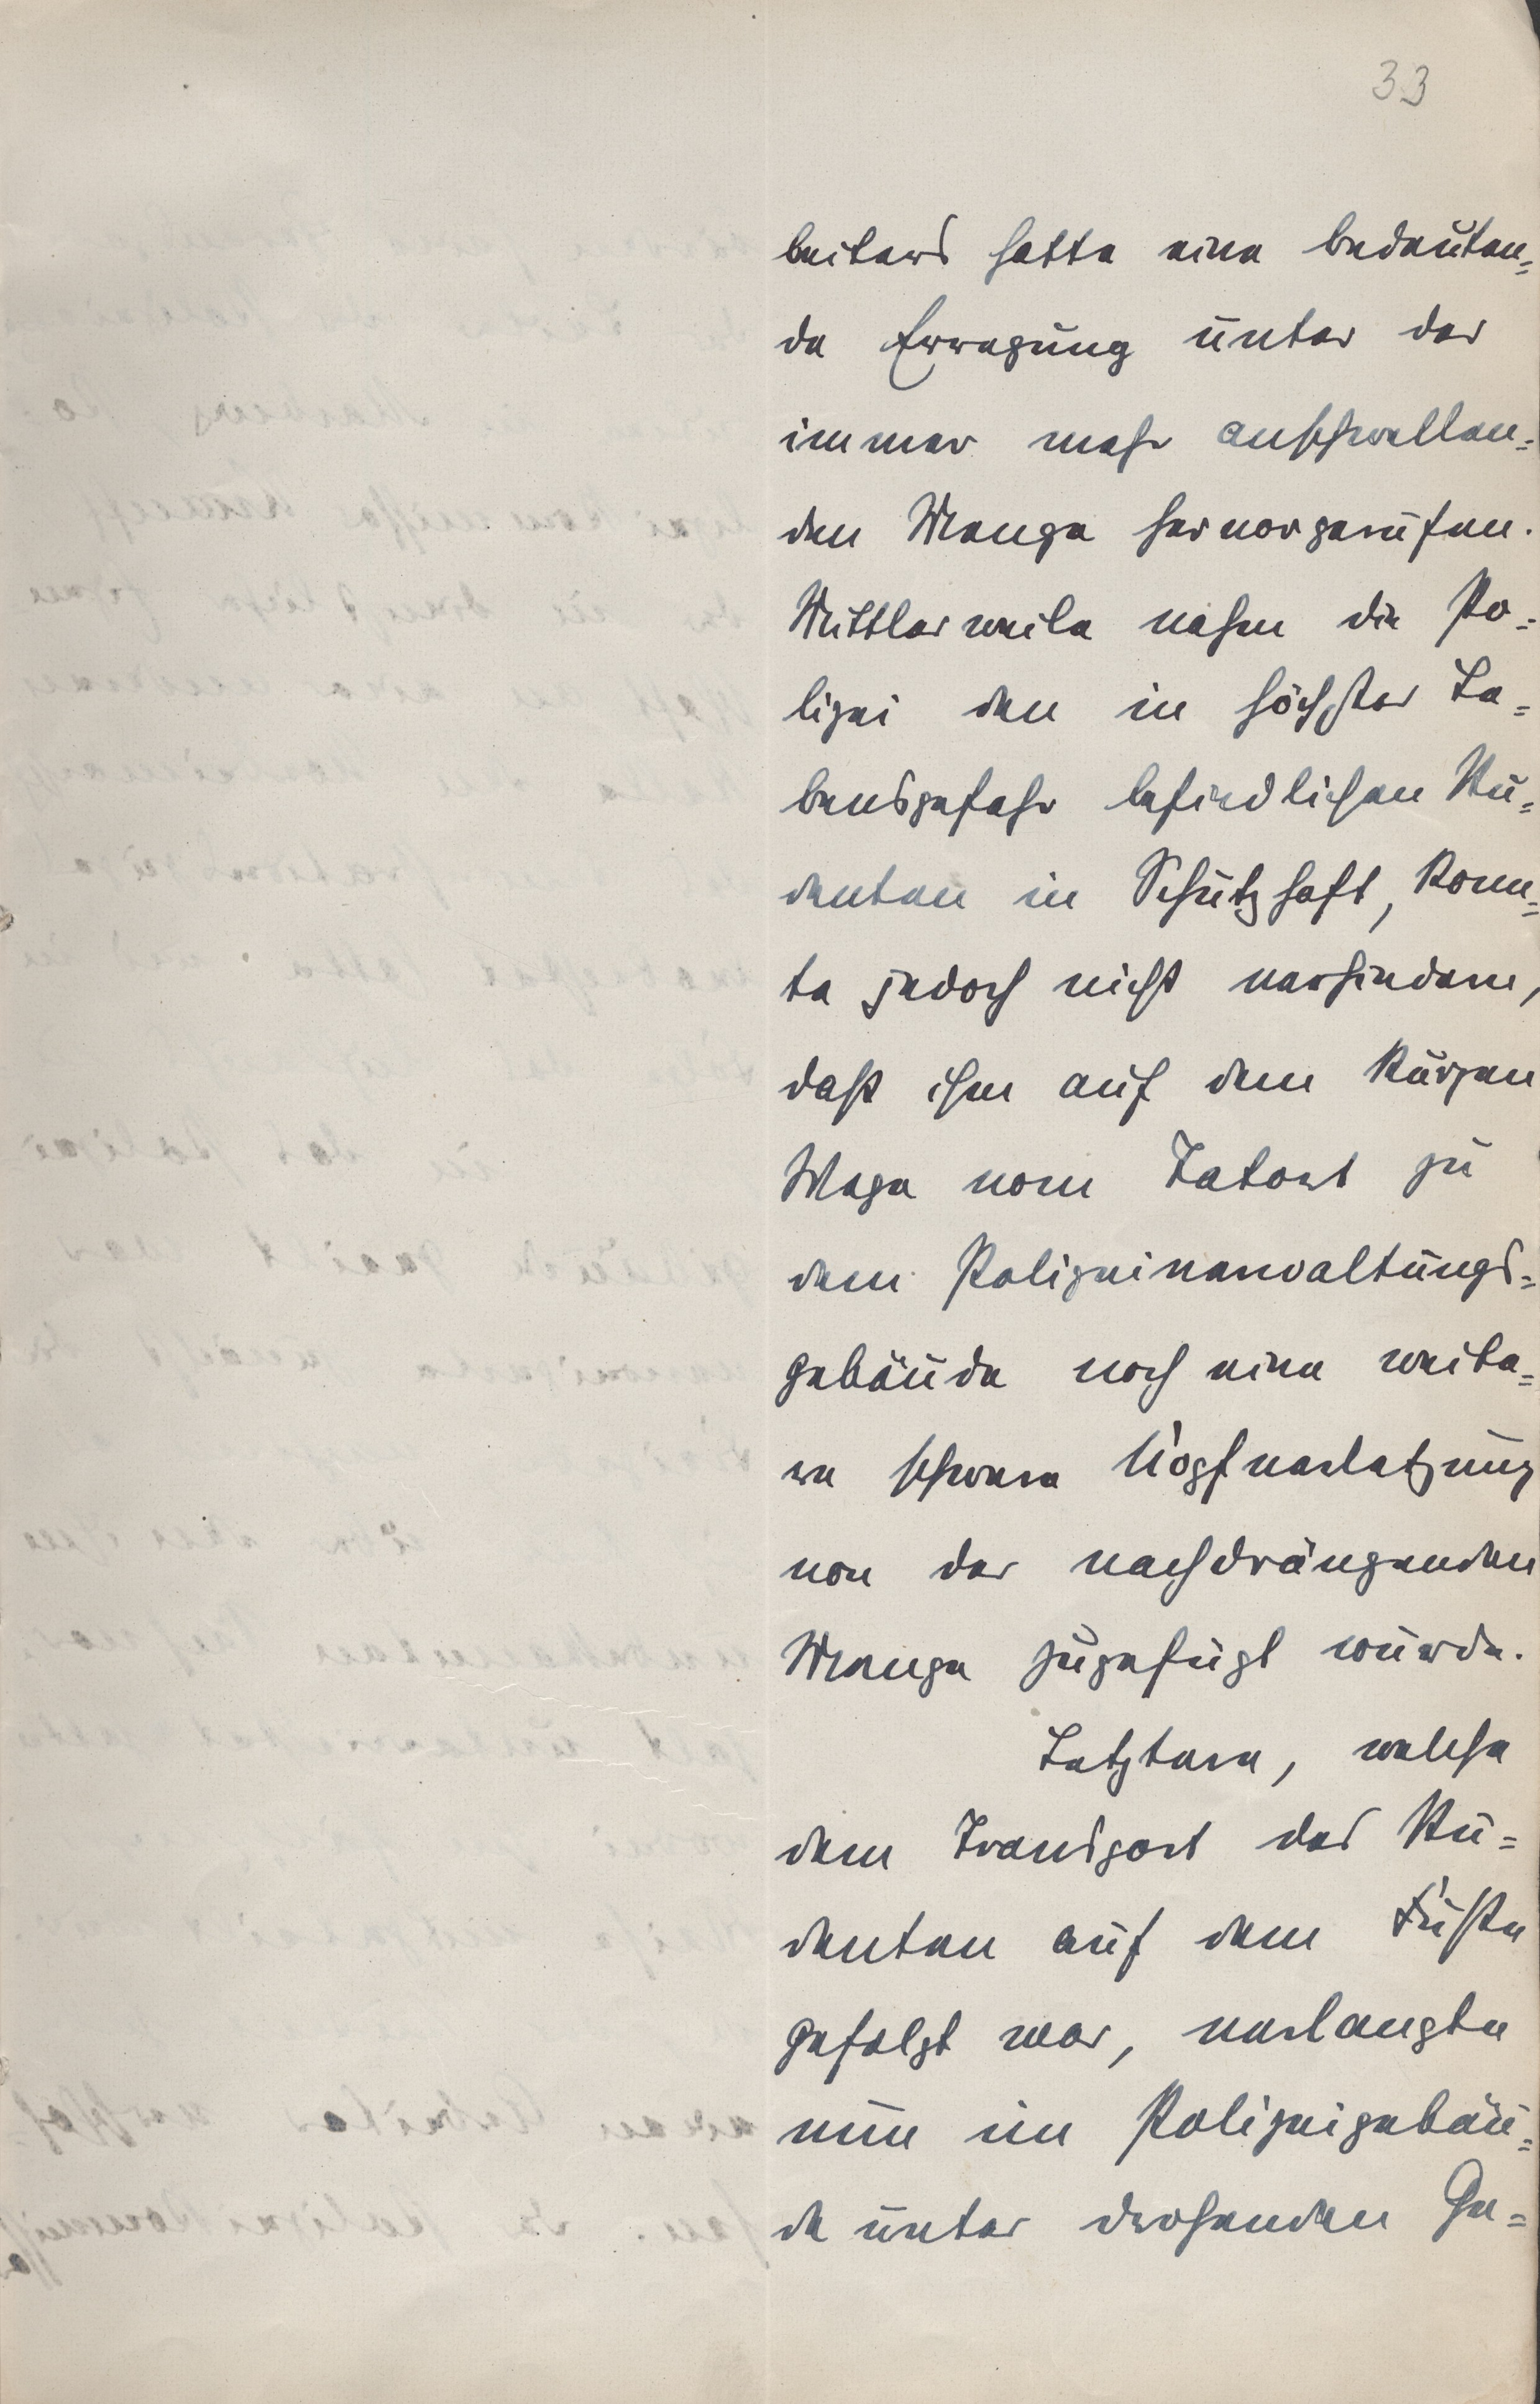 33
beiters hatte eine bedeuten=
de Erregung unter der
immer mehr anschwellen=
den Menge hervorgerufen.
Mittlerweile nahm die Po=
lizei den in höchster Le=
bensgefahr befindlichen Stu=
denten in Schutzhaft, konn=
te jedoch nicht verhindern,
daß ihm auf dem kurzen
Wege vom Tatort zu
dem Polizeiverwaltungs=
gebäude noch eine weite=
re schwere Kopfverletzung
von der nachdrängenden
Menge zugefügt wurde.
Letztere, welche
dem Transport des Stu=
denten auf dem Fuße
gefolgt war, verlangte
nun im Polizeigebäu=
de unter drohenden Ge=